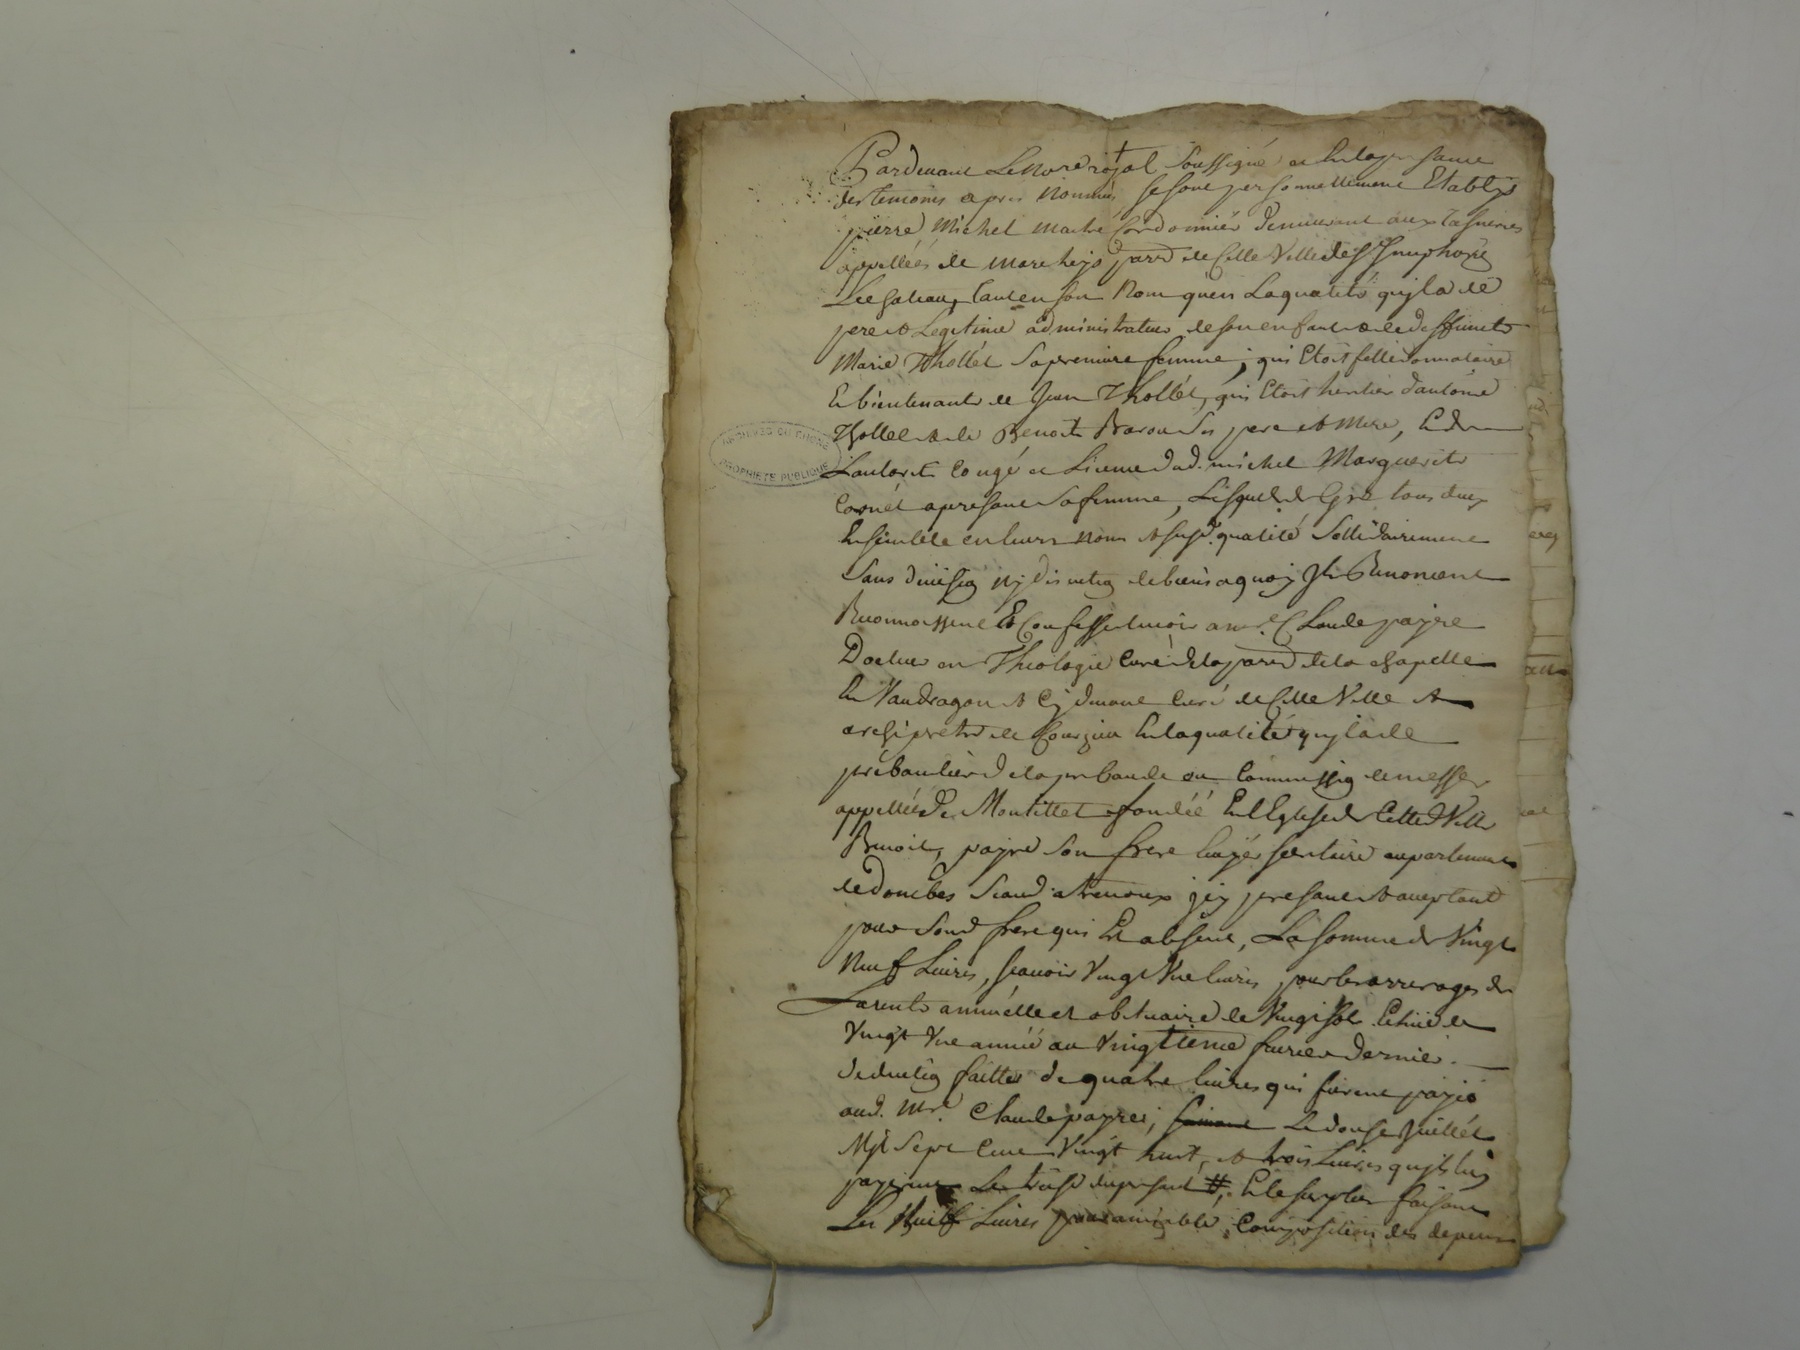 Pardevant Le no.re royal soussigné et En la presance
des temoins apres nommés se sont personnellement Etablys
pierre Michel maitre Cordonnier demeurant aux
appellées de marchejo parr.e de Cette Ville de St Simphorie
Lechateau, tant en son nom qu'en La qualité qu'jl a de
pere et Legitime administrateur de son enfant et de deffuncte
Marie Thollét sa premiere femme, qui Etoit fille donnataire
Et bientenante de Jean Thollét, qui Etoit heritier d'antoine
Thollet et de Benoite ses pere et mere, Et de
L'autorité Congé et Licence dud. michel Marguerite
apresant sa femme, Lesquels de Gré tous deux
Ensemble en leurs noms et susd. qualité Sollidairement
Sans division ny discution de biens a quoy Jls Renoncent
Reconnoissent Et Confessent devoir a mr.e Claude payre
Docteur en Theologie Curé de la parr.e de la chapelle
En Vaudragon et Cy devant Curé de Cette Ville et
archiprêtre de Courzieu En la qualité qu'jl a de
prébandier de la prebande ou Commission de messes
appellée de Montillet fondée En l'Eglise de Cette d. Ville
Benoit payre son frere
de Dombes Seand a trevoux jcy presant et acceptant
pour sond. frere qui Est absent, La somme de Vingt
Neuf Livres, scavoir Vingt Une livres pour les arrerages de
La rente annuelle et obituaire de Vingt sols Echue de
Vingt Une année au Vingtieme fevrier dernier.
deduction faitte de quatre livres qui furent payés
aud. mr.e Claude payre, Le douse Juillét
Mil Sept Cent Vingt huit, et trois Livres qu'jls luy
payerent Le du presant #, Et le surplus faisant
Les Huit Livres pour amiable Composition des depens
ARCHIVES DU RHONE
PROPRIETE PUBLIQUE